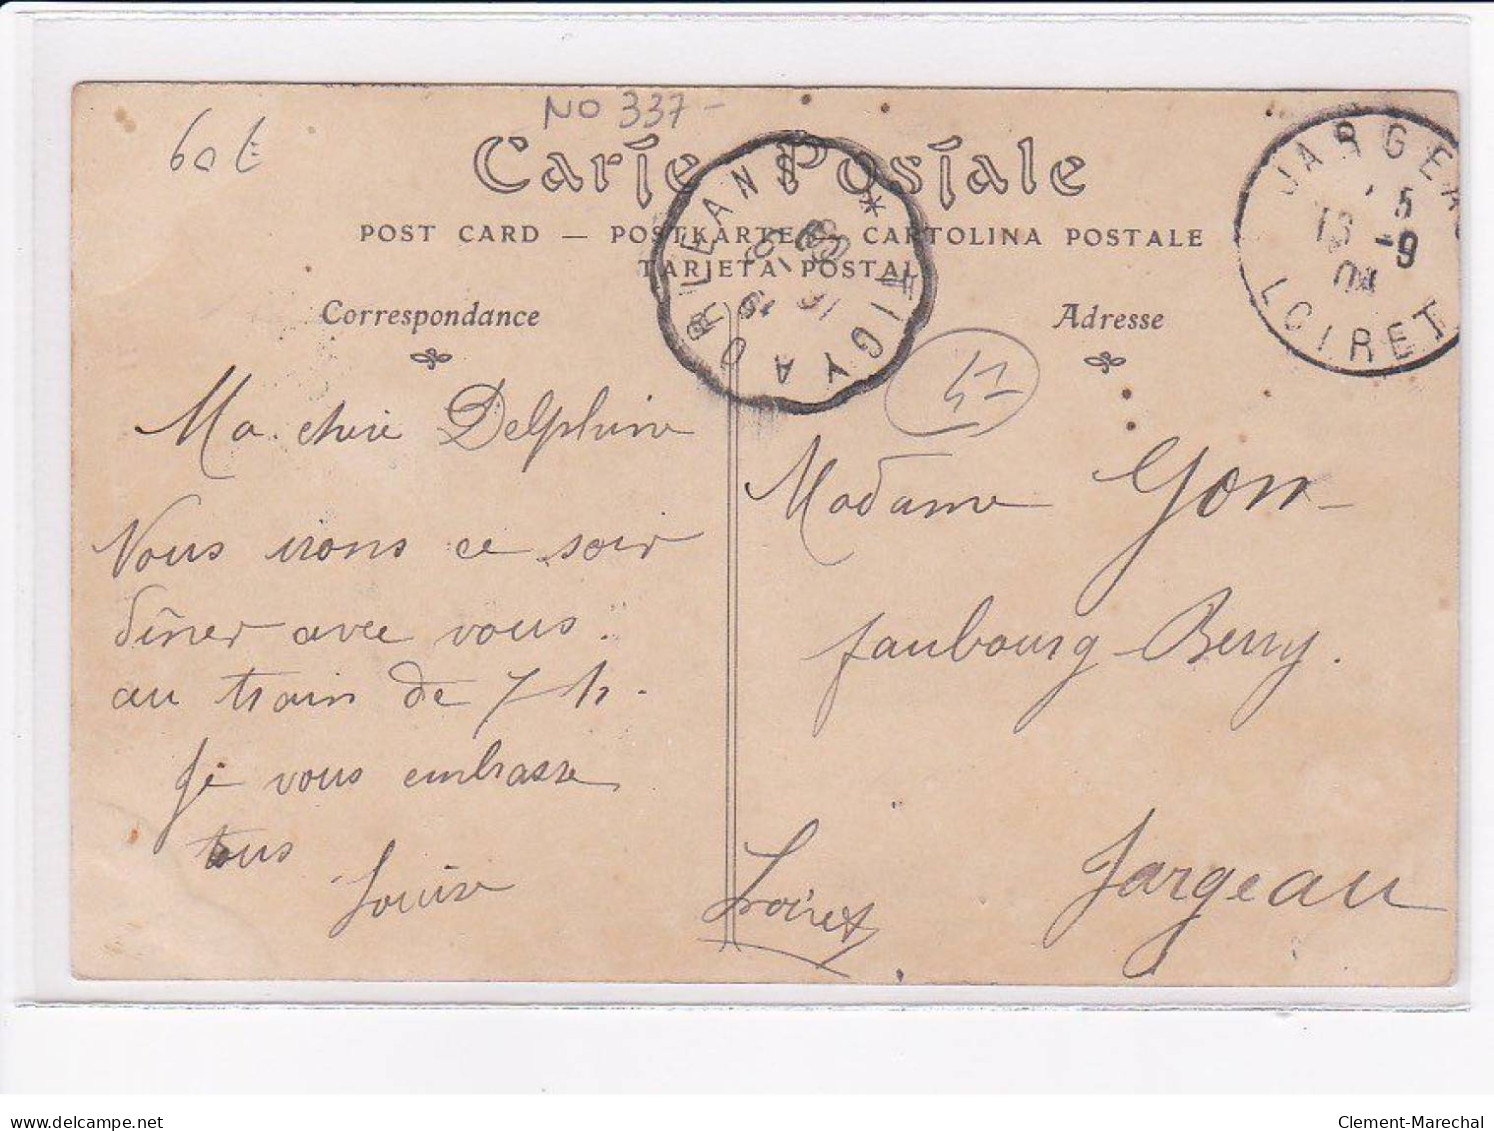 60€
NO 337-
Carte Postale
POST CARD — POSTKARTE — CARTOLINA POSTALE
TARJETA POSTAL
Correspondance
Adresse
VIGY A ORLEANS *
JARGEAU
13 -9
LOIRET
Ma chère Delphine
Nous irons ce soir
dîner avec vous.
au train de 7 h.
Je vous embrasse
tous
Louise
Madame Gon
faubourg Berry.
Jargeau
Loiret
delcampe.net
Clement-Marechal